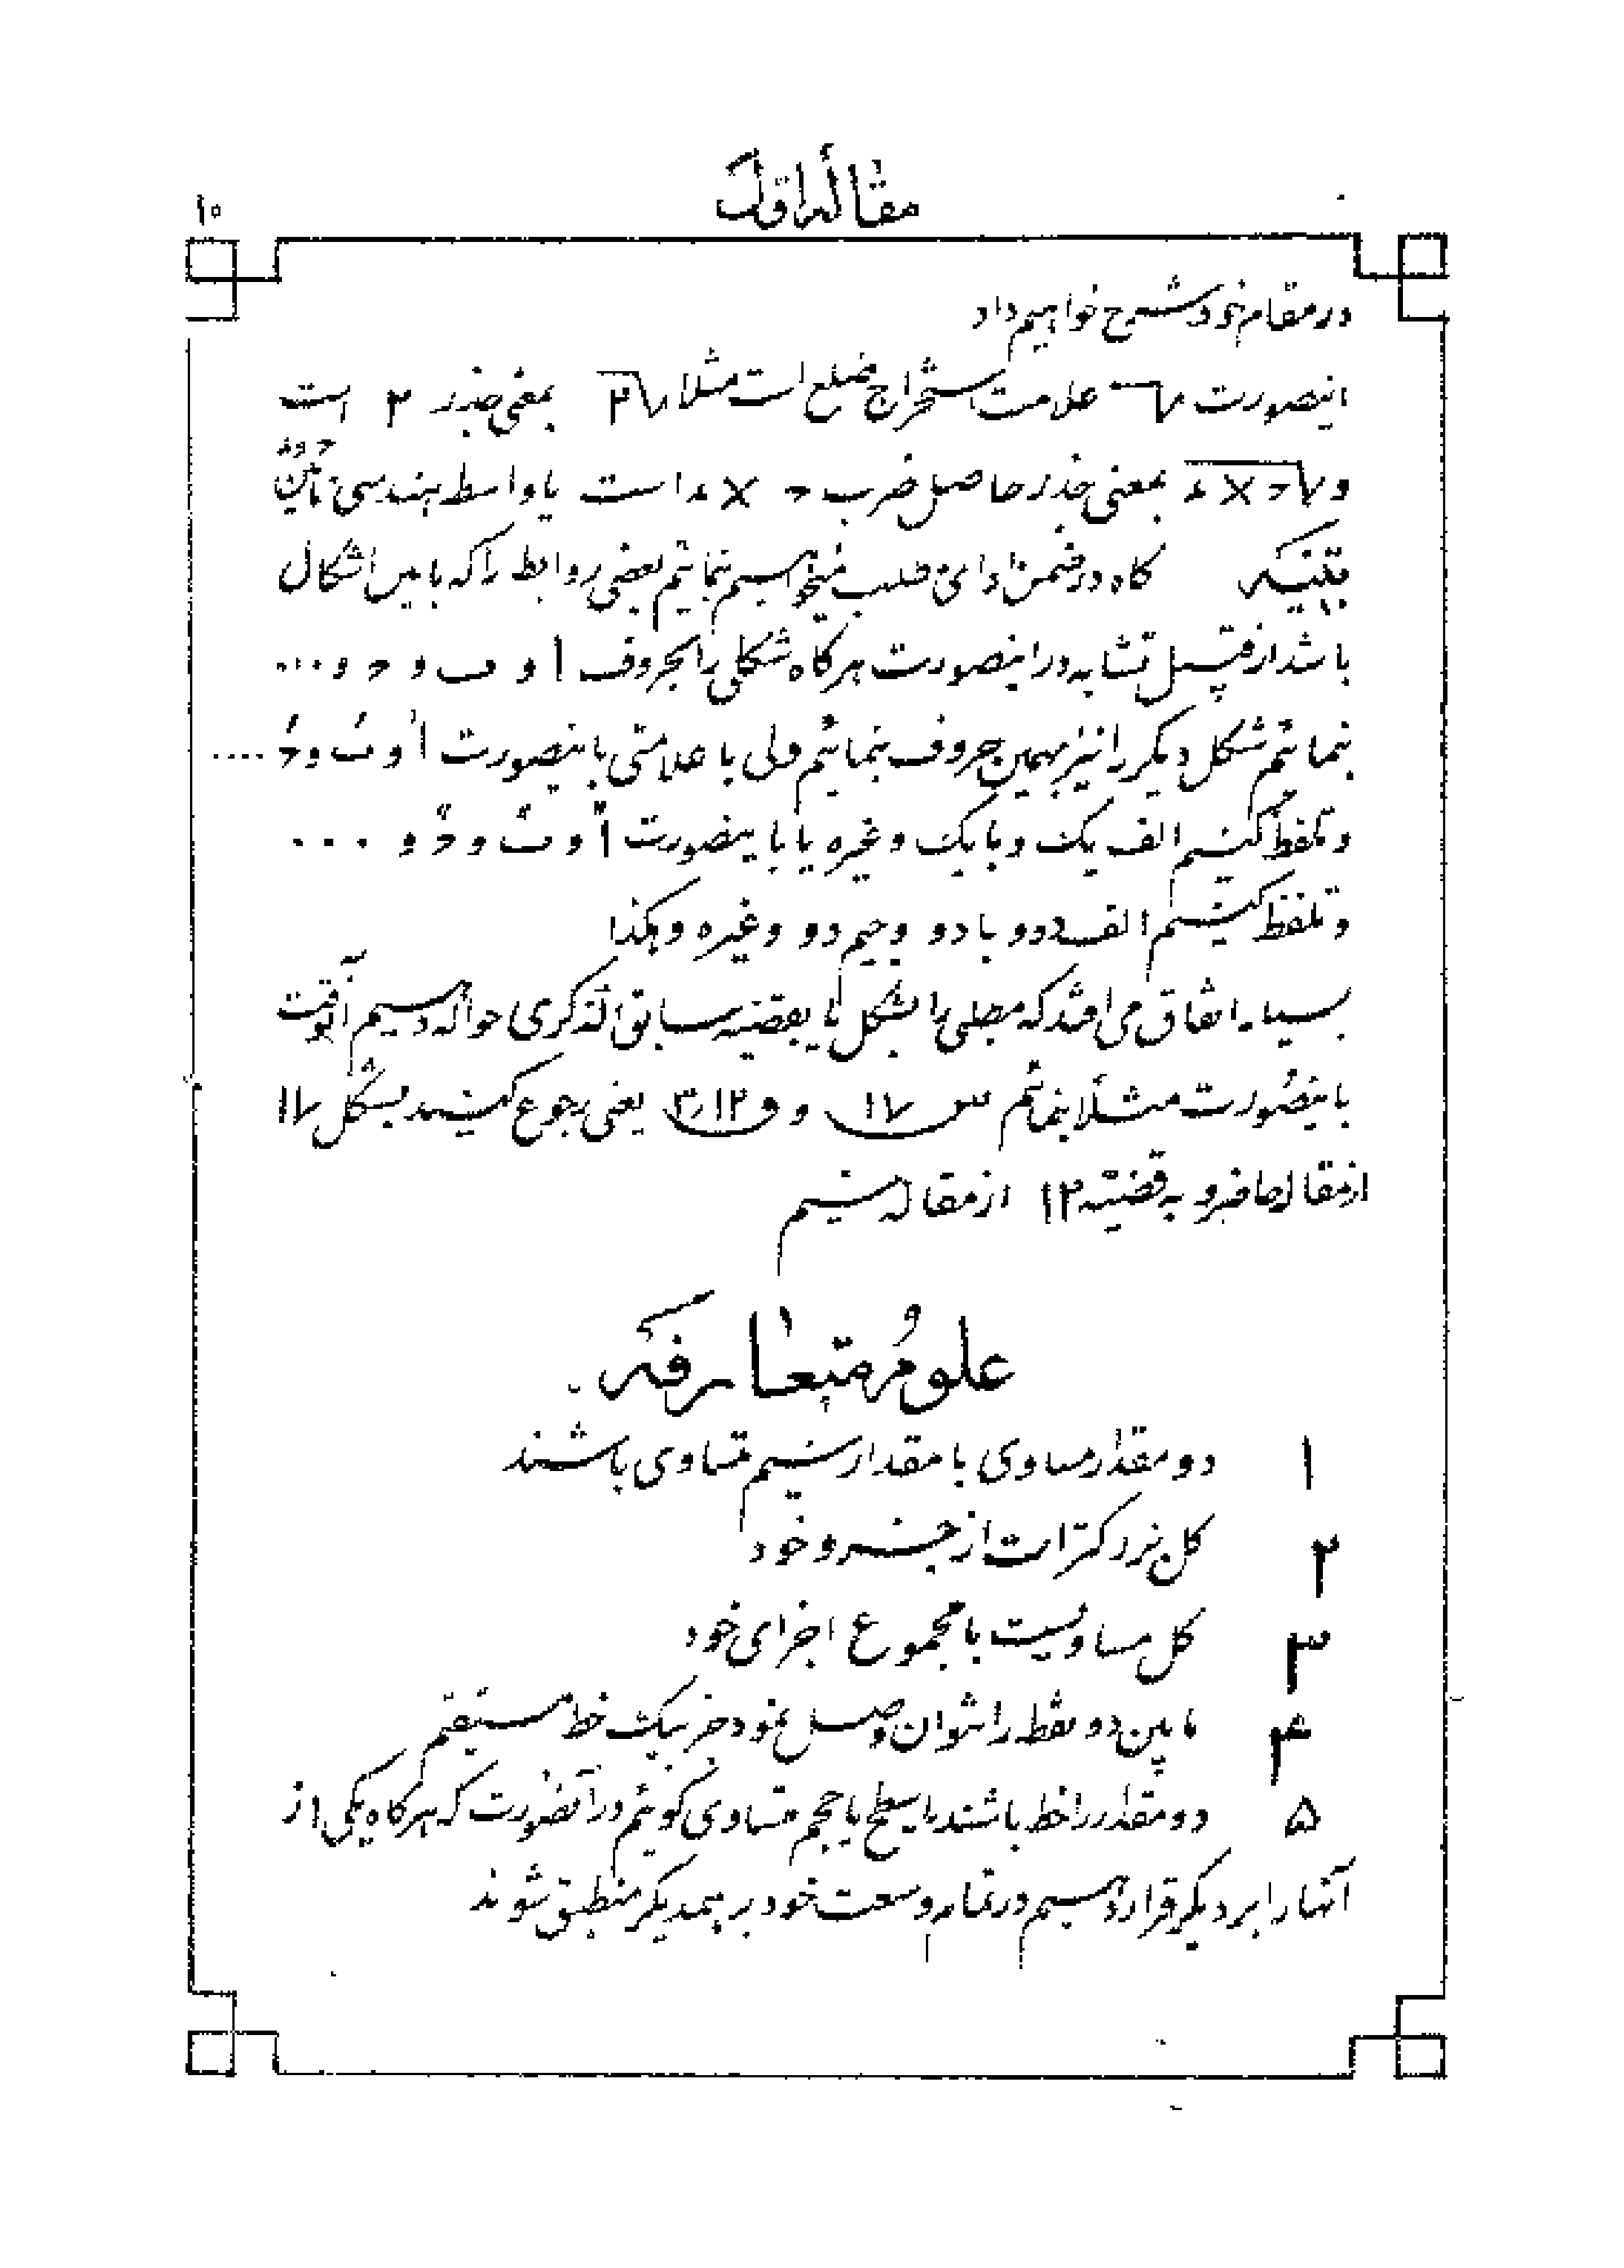 مقالهٔ اوّل
۱۰
در مقام خود شرح خواهیم داد
اینصورت √ علامت استخراج ضلع است مثلا √۲ بمعنی جذر ۲ است
و √حـ × ء بمعنی جذر حاصل ضرب حـ × ء است یا واسط هندسی مابین حـ و ء
تنبیه کاه در ضمن ادای مطلب میخواهیم بنمائیم بعضی روابط را که مابین اشکال
باشد از قبیل تشابه در اینصورت هرکاه شکلی را بحروف ا و ب و حـ و ...
بنمائیم شکل دیکر را نیز بهمین حروف بنمائیم ولی با علامتی باینصورت اَ و بَ و حَـ ....
و تلفظ کنیم الف یک و با یک و غیره یا باینصورت اً و بً و حً و ...
و تلفظ کنیم الف دو و با دو و جیم دو و غیره و هکذا
بسیار اتفاق می افتد که مطلبی را بشکل یا بقضیه سابق الذکری حواله دهیم آنوقت
باینصورت مثلاً بنمائیم س ۱۷ و ق ۱۲ر۳ یعنی رجوع کنید بشکل ۱۷
از مقاله حاضر و به قضیّه ۱۲ از مقاله سیم
علوم متعارفه
۱ دو مقدار مساوی با مقدار سیم متساوی باشند
۲ کل بزرکتر است از جزو خود
۳ کل مساویست با مجموع اجزای خود
۴ مابین دو نقطه را نتوان وصل نمود جز بیک خط مستقیم
۵ دو مقدار را خط باشند یا سطح یا حجم متساوی کوئیم در آنصورت که هرکاه یکی از
آنها را بر دیکر قرار دهیم در تمام وسعت خود بر یمدیکر منطبق شوند